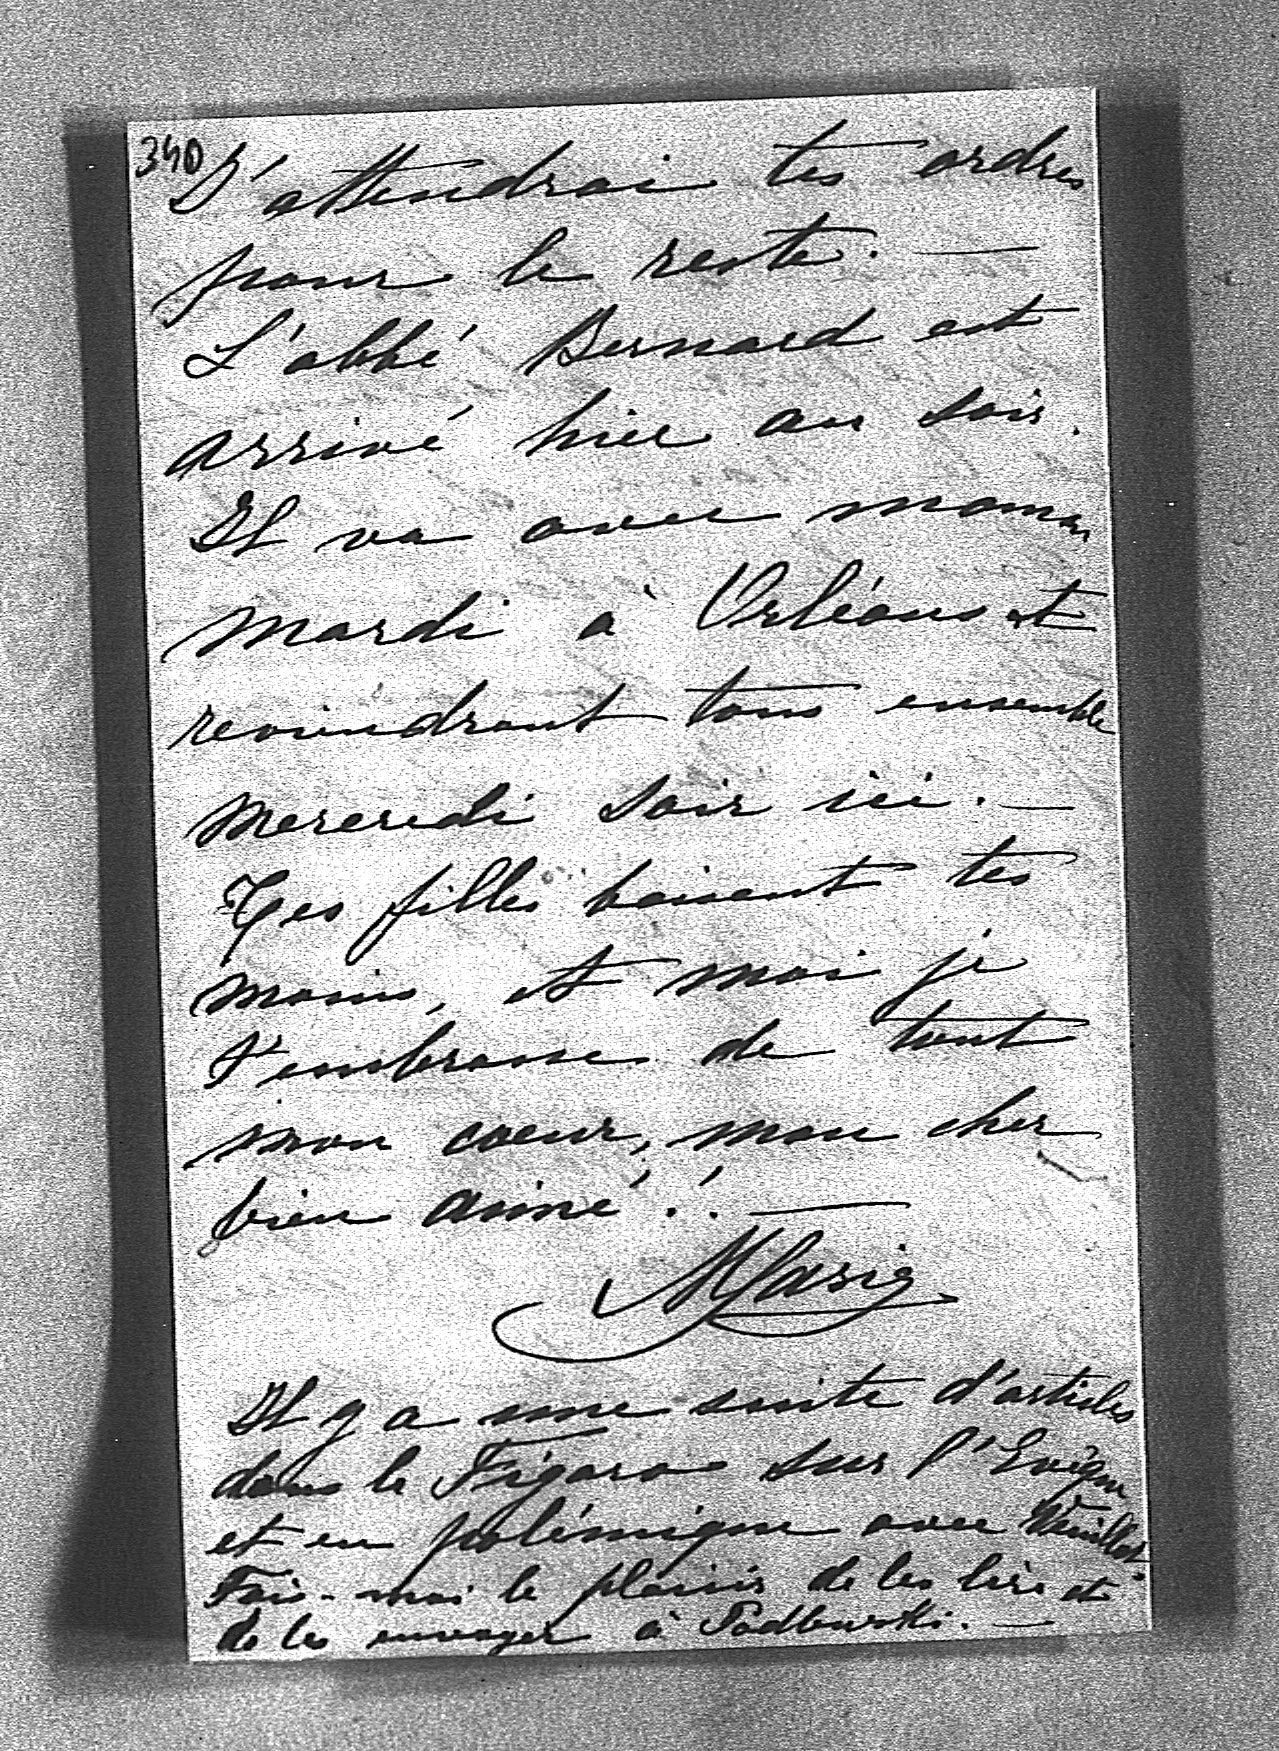 340
J'attendrai tes ordres
pour le reste. —
L'abbé Bernard est
arrivé hier au soir.
Il va avec maman
mardi à Orléans et
reviendront tous ensemble
mercredi soir ici. —
Tes filles baisent tes
mains, et moi je
t'embrasse de tout
mon coeur, mon cher
bien aimé! —
Marie
Il y a une suite d'articles
dans le Figaro sur l'Evêque
et en polémique avec Veuillot.
Fais-moi le plaisir de les lire et
de les envoyer à Podlewski. —